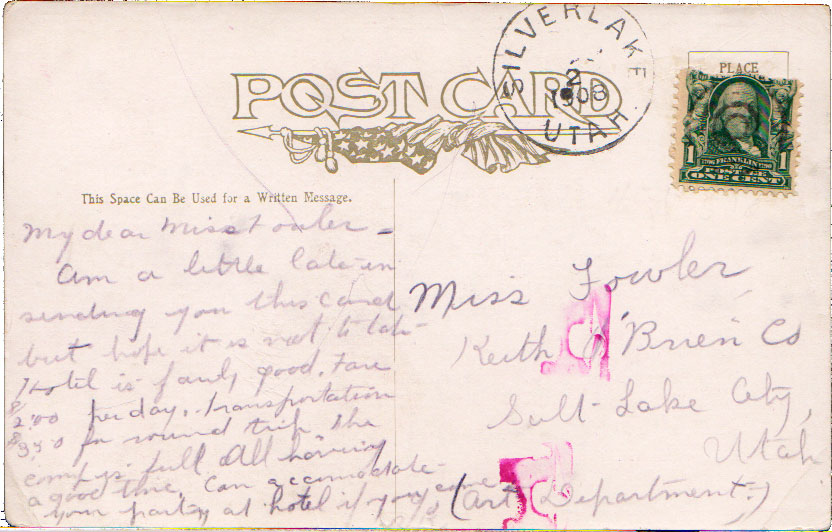 POST CARD
SILVERLAKE
2
1908
UTAH
PLACE
1 FRANKLIN 1
POSTAGE
ONE CENT
This Space Can Be Used for a Written Message.
My dear Miss Fowler -
Am a little late in
sending you this card
but hope it is not to late
Hotel is fairly good. Fare
$2.00 per day. Transportation
$3.50 for round trip. The
camp is full All having
a good time. Can accomodate
your party at hotel if you come
Miss Fowler
Keith O'Brien Co
Salt-Lake City,
Utah
(Art Department.)